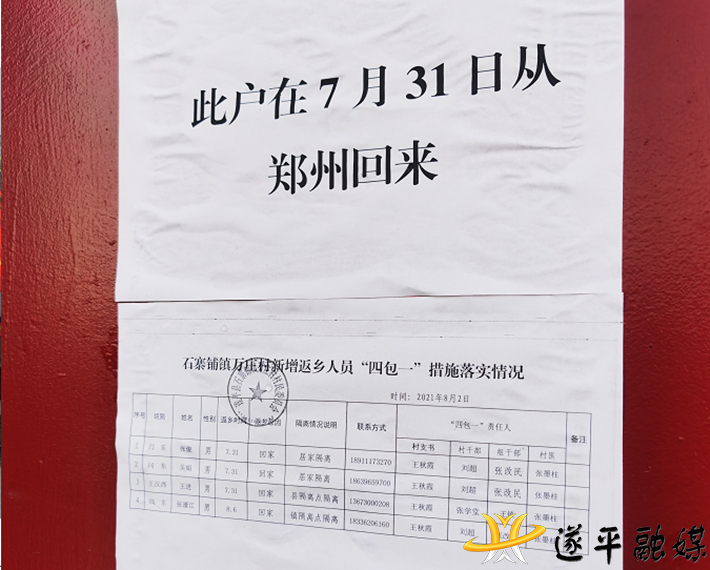 此户在7月31日从
郑州回来
石寨铺镇万庄村新增返乡人员“四包一”措施落实情况
时间：2021年8月2日
序号 组别 姓名 性别 返乡时间 返乡原因 隔离情况说明 联系方式 “四包一”责任人 备注
村支书 村干部 组干部 村医
1 张俊 男 7.31 回家 居家隔离 18911173270 王秋霞 刘超 张改民 张墨柱
2 男 7.31 回家 居家隔离 18639659700 王秋霞 刘超 张改民 张墨柱
3 男 7.31 回家 县隔离点隔离 13673000208 王秋霞 张学堂 张墨柱
4 男 8.6 回家 镇隔离点隔离 18336206160 王秋霞 刘超 张墨柱
遂平融媒